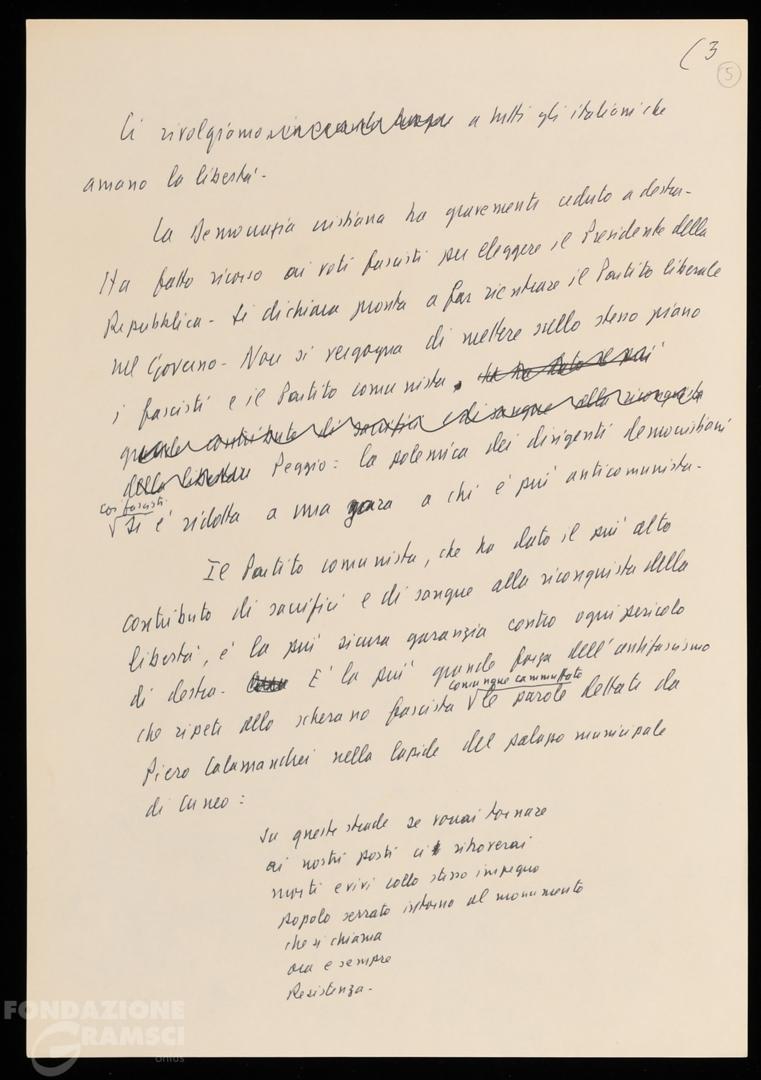 (3
5
Ci rivolgiamo a tutti gli italiani che
amano la libertà.
La Democrazia cristiana ha gravemente ceduto a destra.
Ha fatto ricorso ai voti fascisti per eleggere il Presidente della
Repubblica. Si dichiara pronta a far rientrare il Partito liberale
nel Governo. Non si vergogna di mettere sullo stesso piano
i fascisti e il Partito comunista, che ha dato il più
grande contributo di sacrifici e di sangue alla riconquista
della libertà Peggio: la polemica dei dirigenti democristiani
coi fascisti
si è ridotta a una gara a chi è più anticomunista.
Il Partito comunista, che ha dato il più alto
contributo di sacrifici e di sangue alla riconquista della
libertà, è la più sicura garanzia contro ogni pericolo
di destra. È la più grande forza dell'antifascismo
comunque cammuffato
che ripete allo scherano fascista le parole dettate da
Piero Calamandrei nella lapide del palazzo municipale
di Cuneo:
su queste strade se vorrai tornare
ai nostri posti ci ritroverai
morti e vivi collo stesso impegno
popolo serrato intorno al monumento
che si chiama
ora e sempre
Resistenza.
FONDAZIONE
GRAMSCI
onlus